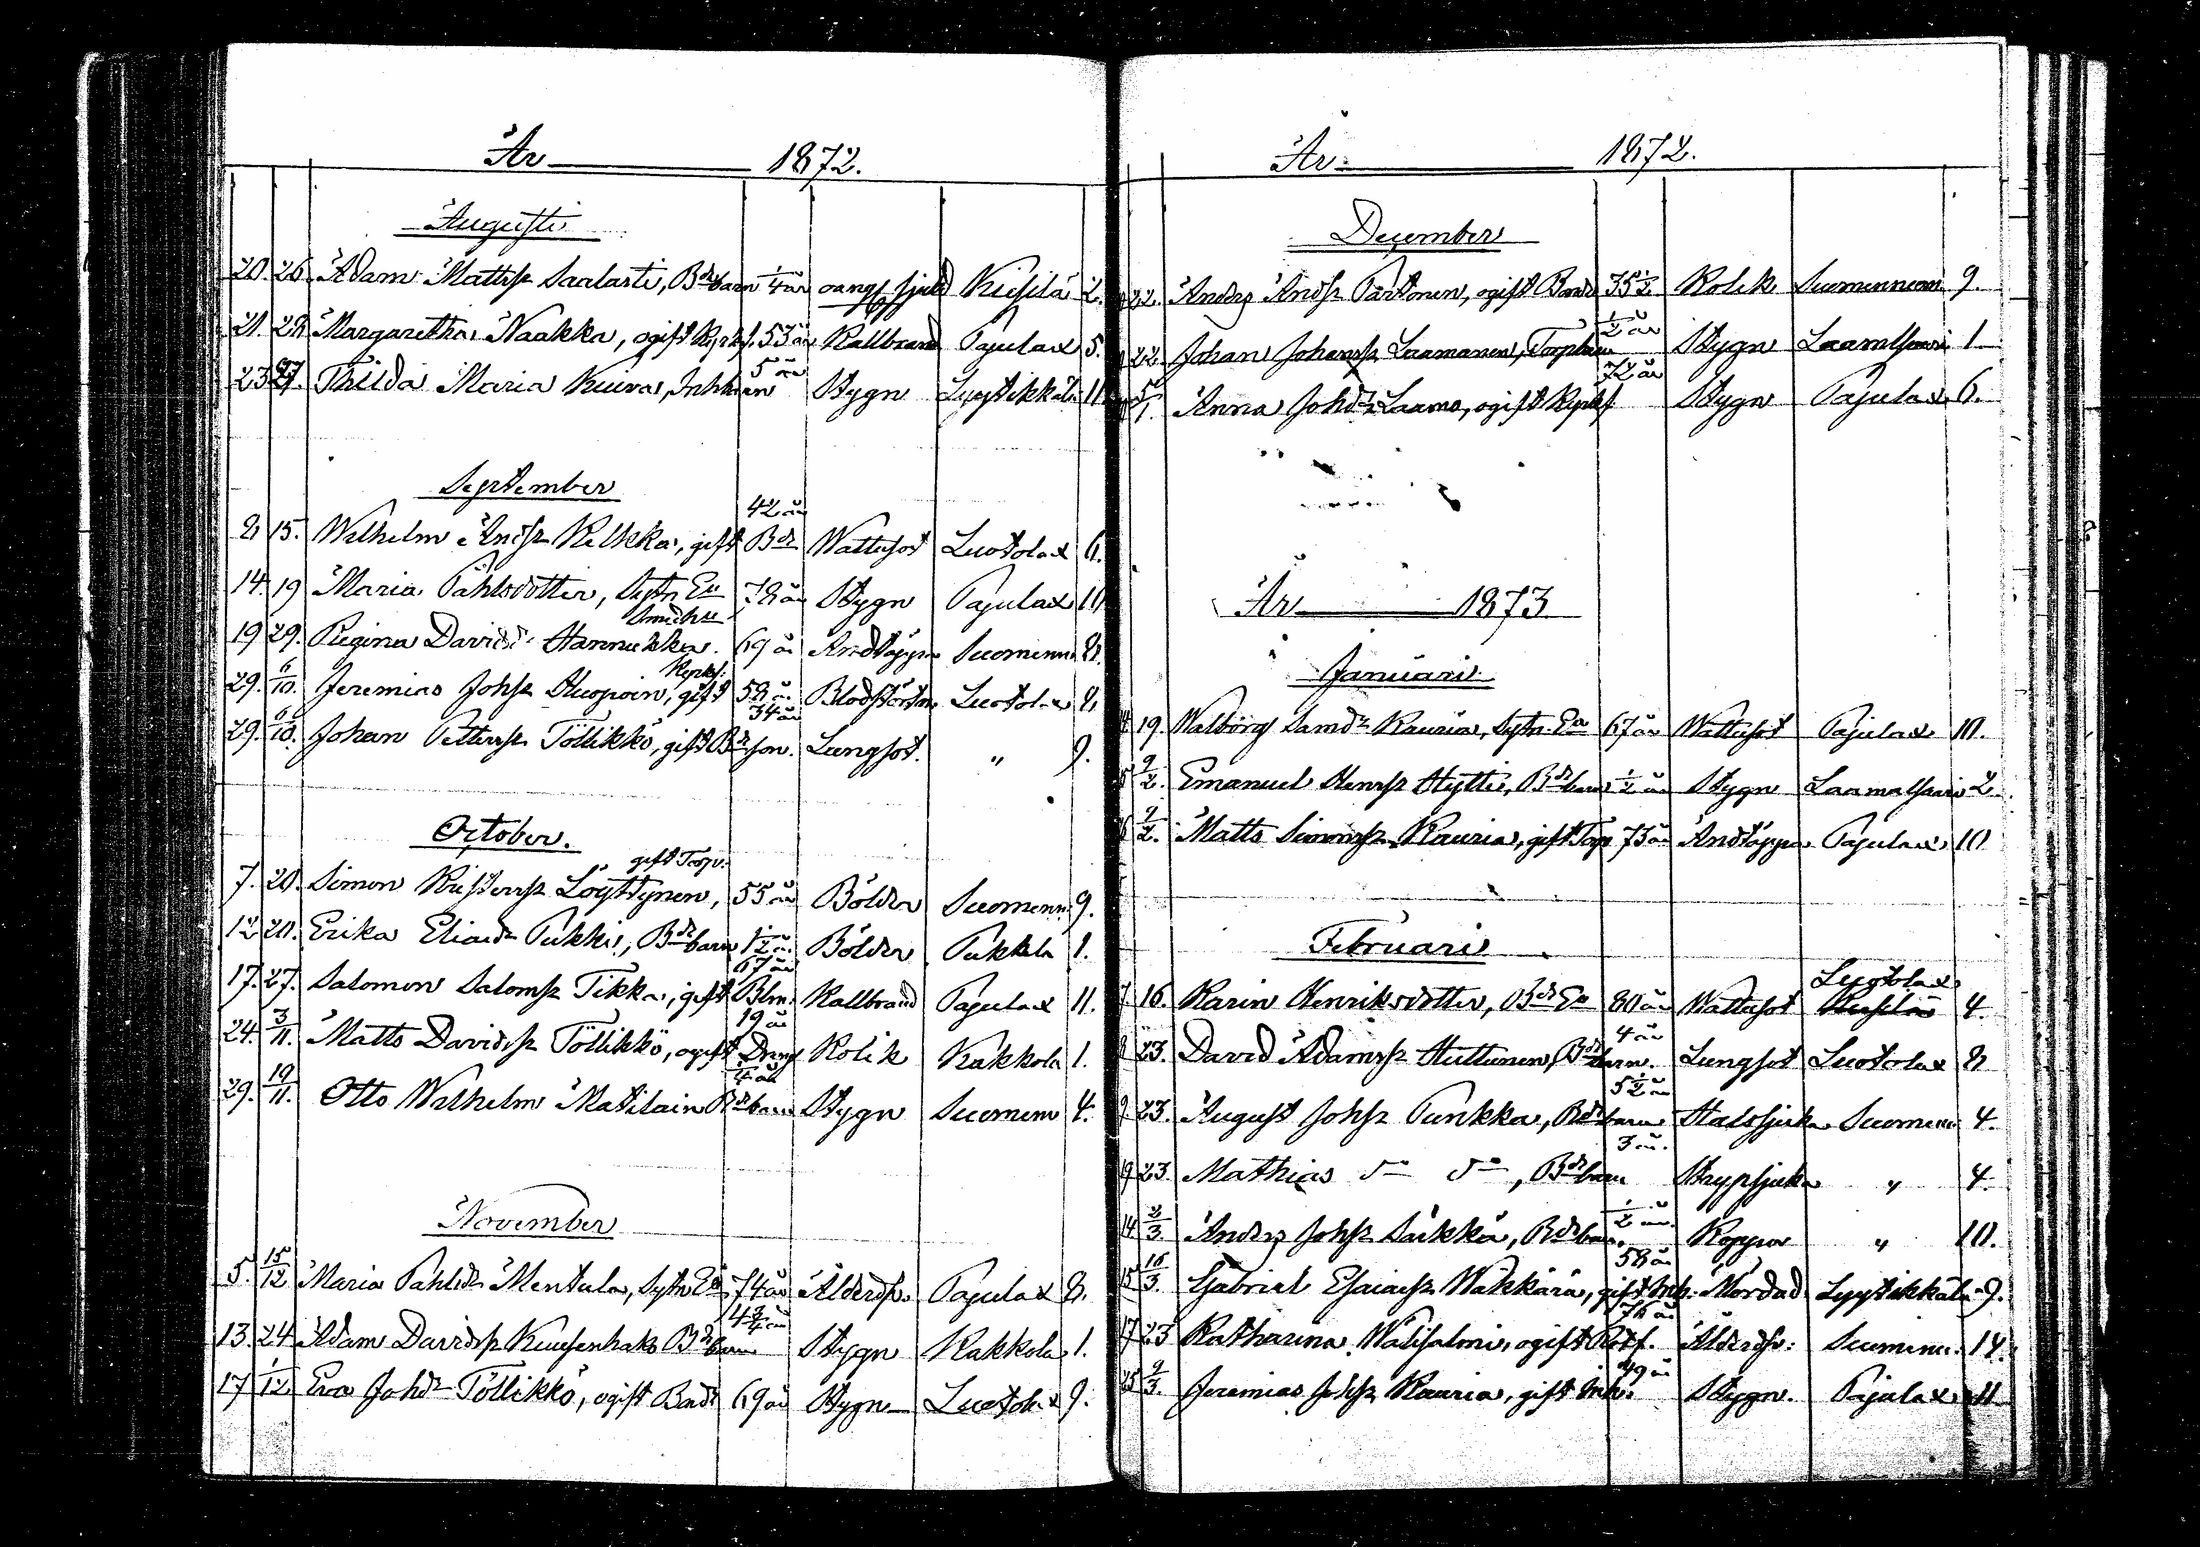 År 1872.
Augusti
20. 26. Adam Mattss Saalasti, Bdebarn 1/4 år Kirsilä 2.
21. 28. Margaretha Naakka, ogift 53 år Kallbrand Pajulax 5.
23. Thilda Maria Kuiva, Inhbarn 5 år Stygn Lyytikkälä 11
September
8 15. Wilhelm Andss Kelkka, gift Bde 42 år Wattusot Luotolax 6.
14. 19 Maria Påhlsdotter, Sytn. Ea 78 år Stygn Pajulax 11
19 29. Regina Davidsd. Hannukka. 69 år Andtäppa Suomenn 8.
29. 6/10. Jeremias Johss gift 58 år Blodstörtn Luotolax 8
29. 6/10. Johan Petterss Töllikkö, gift Bdeson. 34 år Lungsot. " 9.
October.
7. 20. Simon Kristerss Löyttynen, gift Torp. 55 år Bölder Suomenn 9.
12 20. Erika Eliaedr Pukki, Bdebarn 1/2 år Bölder Pukkila 1.
17. 27. Salomon Salomss Tikka, gift 67 år Kallbrand Pajulax 11.
24. 3/11. Matts Davidss Töllikkö, ogift Dreng 19 år Kolik Kakkola 1.
29. 10/11. Otto Wilhelm Matilain Bdebarn 1/4 år Stygn Suomenn 4.
November
5. 15/12 Maria Påhlsdr Mentula, Sytn Ea 74 år Ålderds. Pajulax 8.
13. 24. Adam Davidss Kuusenhako Bdebarn 4 3/4 år Stygn Kakkola 1.
17 1/12 Eva Johdr Töllikkö, ogift 69 år Stygn Luotolax 9.
År 1872.
December
22. Anders Andss Partonen, ogift 75 1/2 Kolik Suomennem 9.
22. Johan Johanss Laamanen, Torpbarn 1/2 år Stygn Laamalsaari 1
5/1. Anna Johdr Laama, ogift 72 år Stygn Pajulax 6.
År 1873
Januari
19. Walborg Samdr Kauria, Sytn. Ea 67 år Wattusot Pajulax 10.
9/2. Emanuel Henrss Hytti, Bdebarn 1/2 år Stygn Laamalsaari 2
9/2. Matts Simonss Kauria, gift Torp 73 år Andtäppa Pajulax 10
Februari
7 16. Karin Henriksdotter, Bde Ea 80 år Wattusot Luotolax 4.
8 23. David Adamss Huttunen, Bdebarn. 4 år Lungsot Luotolax 8
9 23. August Johss Punkka, Bdebarn 5 1/2 år Halssjuka Suomenn 4.
9 23. Mathias d:o d:o, Bdebarn 3 år. Strypsjuka " 4.
14 2/3. Anders Johss Säkkä, Bdebarn. 1/2 år. Koppor " 10.
15 16/3. Gabriel Esaiass Wäkkärä, gift Inh. 58 år Mördad Lyytikkälä 9.
17 23 Katharina Wälisalmi, ogift 76 år Ålderds: Suomenn. 14.
25 9/3. Jeremias Johss Kauria, gift Inh. 49 år Stygn. Pajulax 11